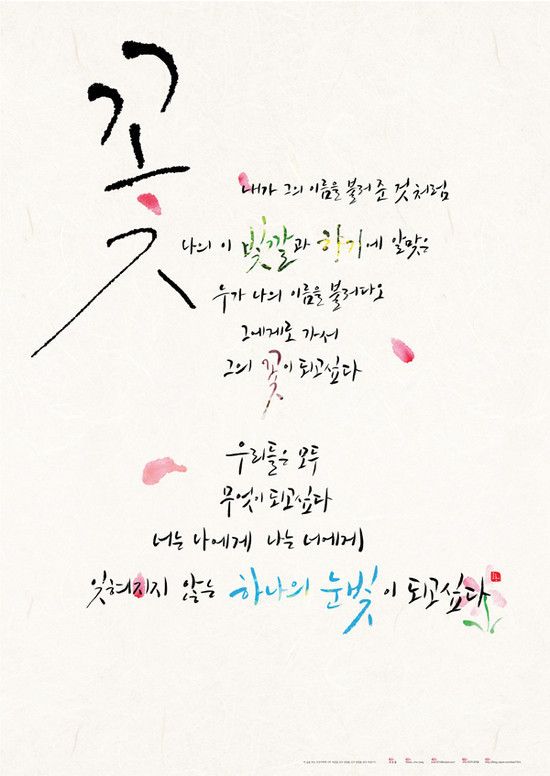 꽃
내가 그의 이름을 불러준 것처럼
나의 이 빛깔과 향기에 알맞은
누가 나의 이름을 불러다오
그에게로 가서
그의 꽃이 되고싶다
우리들은 모두
무엇이 되고싶다
너는 나에게 나는 너에게
잊혀지지 않는 하나의 눈빛이 되고싶다